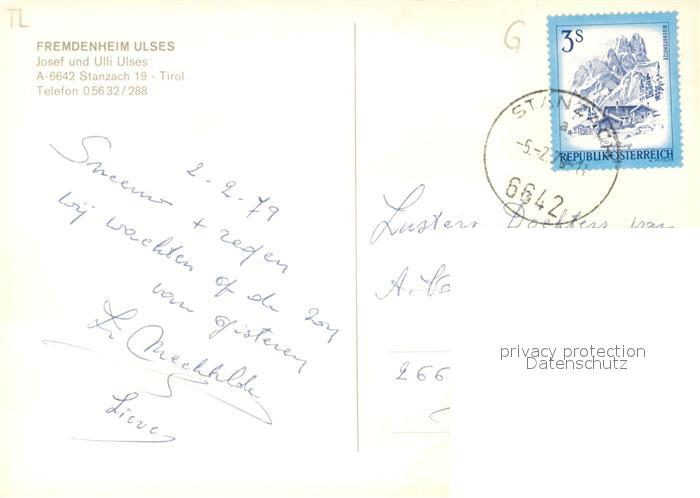 TL
G
FREMDENHEIM ULSES
Josef und Ulli Ulses
A-6642 Stanzach 19 - Tirol
Telefon 05632/288
3S
BISCHOFSMÜTZE
REPUBLIK ÖSTERREICH
STANZACH
a
-5.-2.79
6642
2-2-79
Sneeuw + regen
wij wachten op de zon
van gisteren
Zr Mechtilde
Lieve
Zusters Dochters van
A.
266
privacy protection
Datenschutz